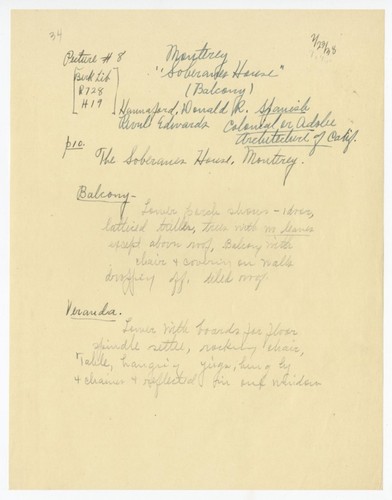 34
7/29/43
Picture # 8
Monterey
"Soberanes House"
(Balcony)
Berk Lib
R728
H19
Hannaford, Donald R. Spanish
Revell Edwards Colonial or Adobe
Architecture of Calif.
pic. The Soberanes House, Monterey.
Balcony -
Lower porch shows - 1 door,
latticed trellis, trees with leaves
except above roof, Balcony with
chair & on wall
dropping off. tiled roof
Veranda.
Lower with boards for floor
spindle settle, rocking chair,
Table, hanging jugs, hung by
4 chains & reflected in one window